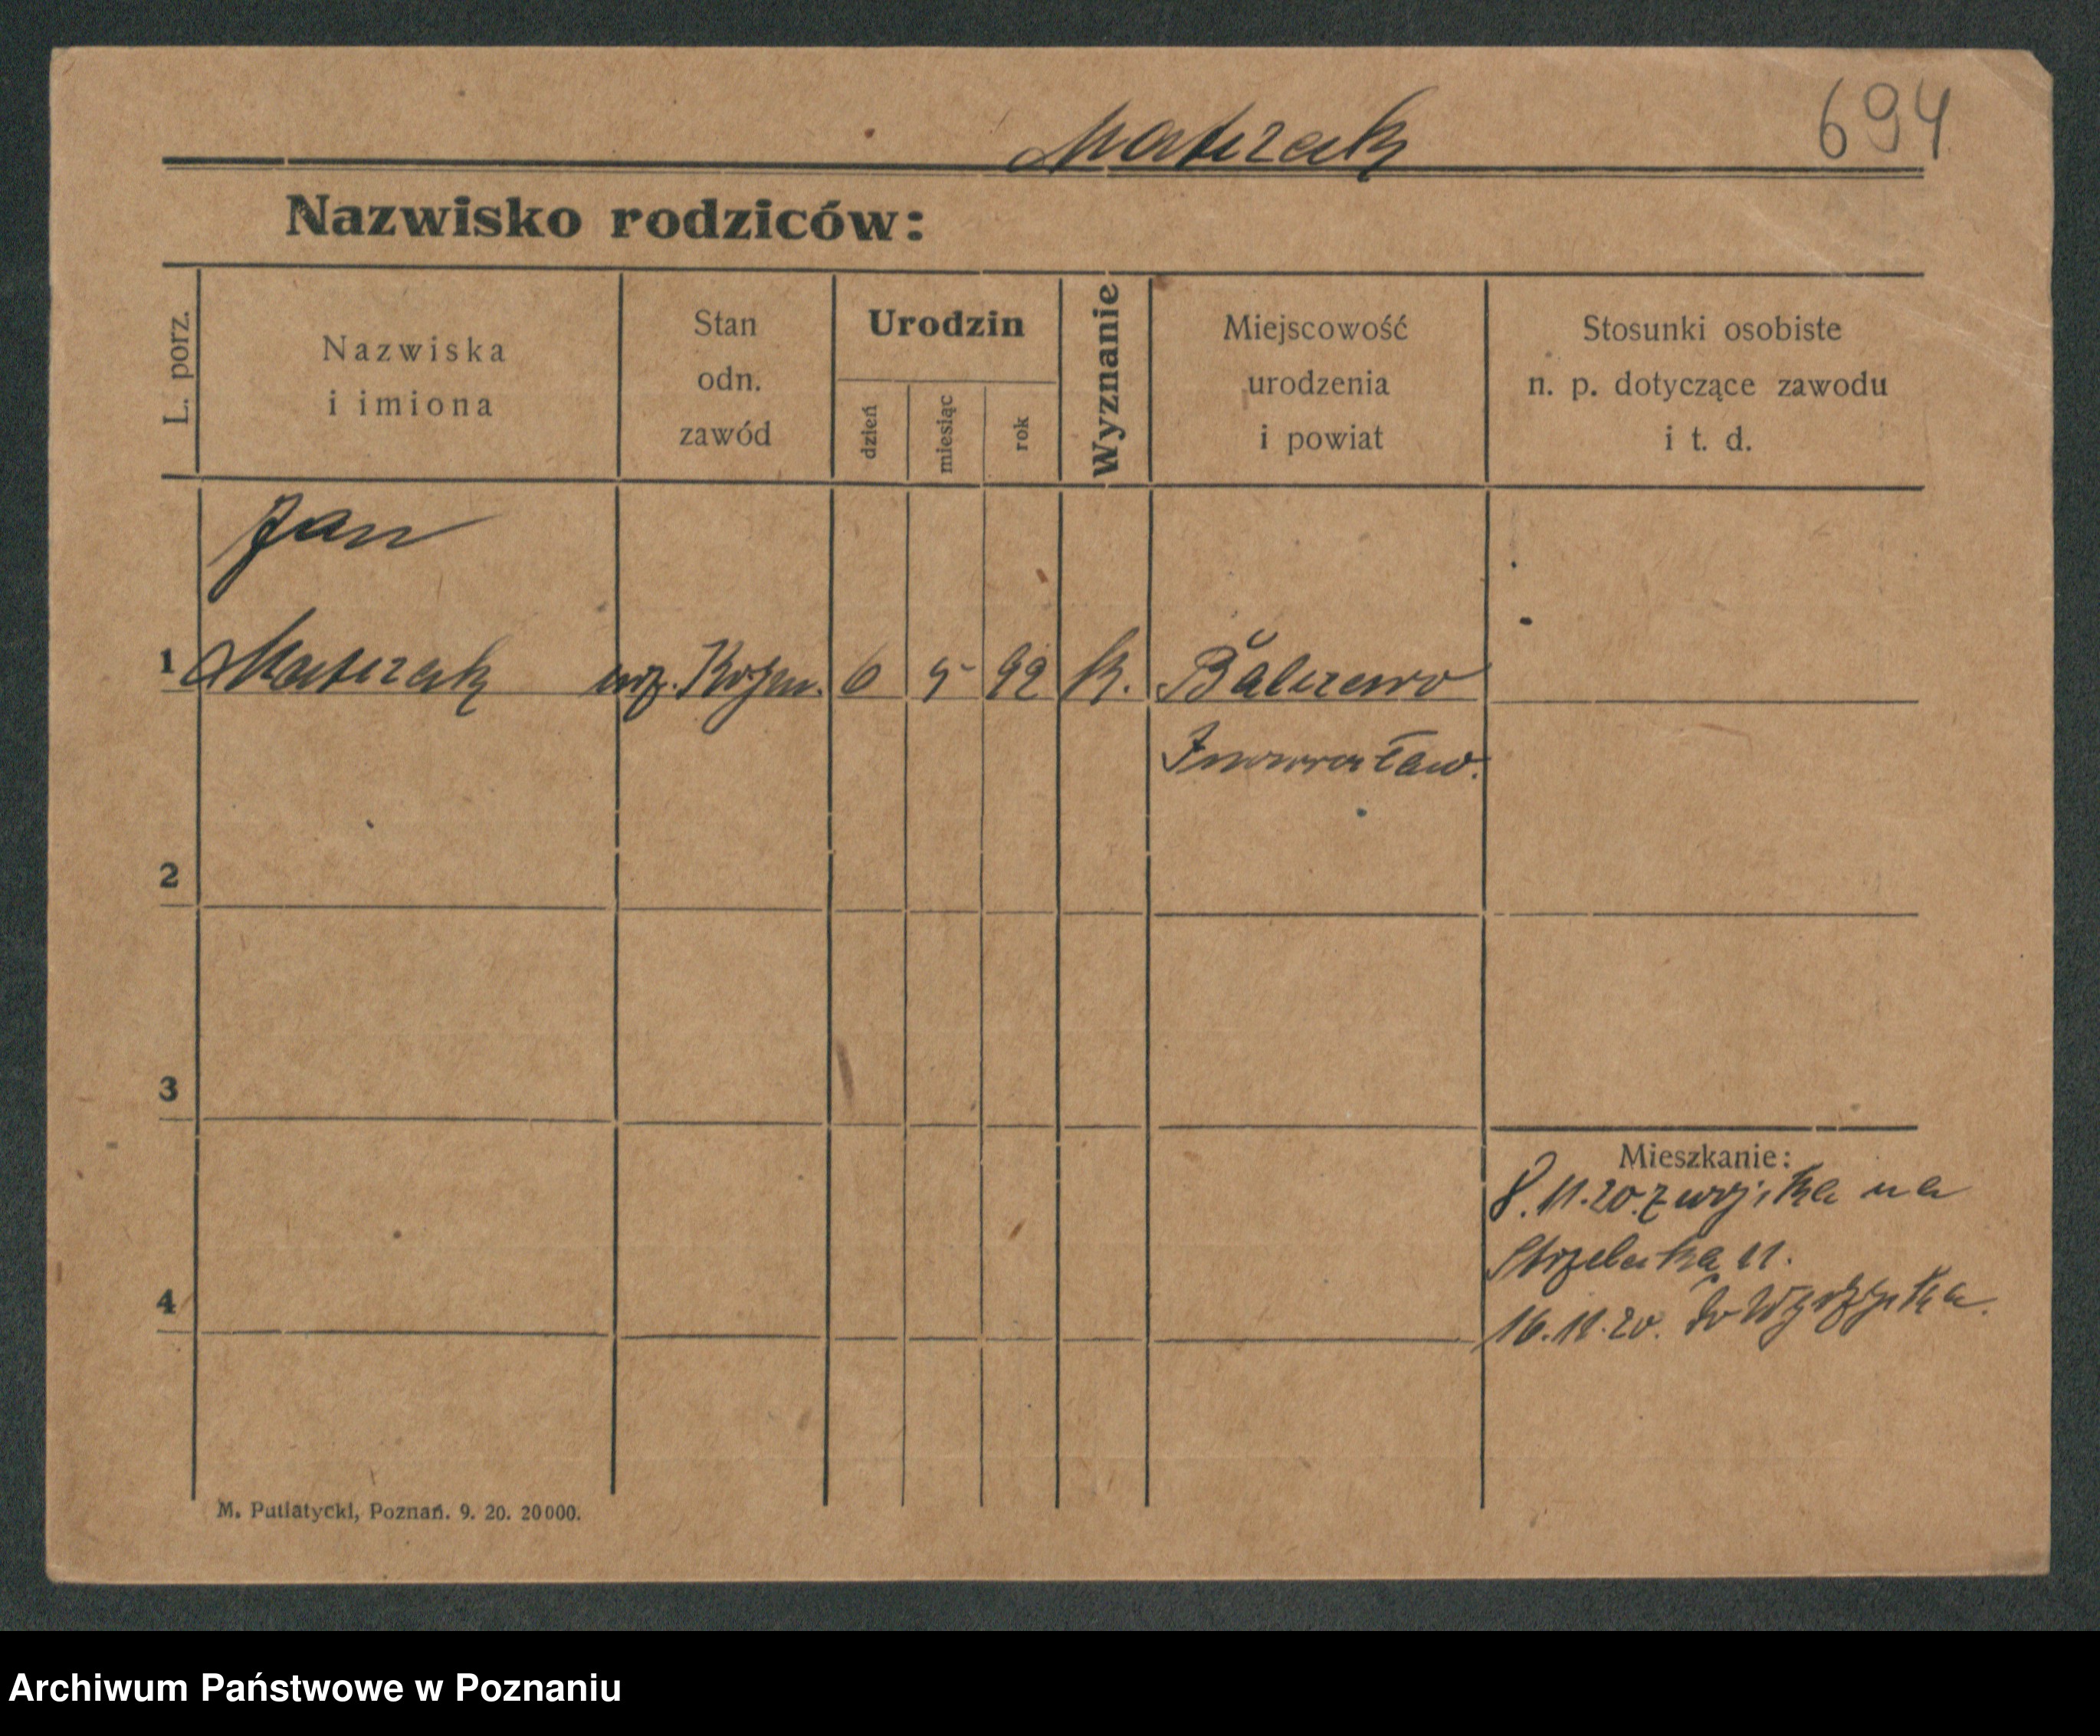 Matczak
694
Nazwisko rodziców:
L. porz.
Nazwiska
i imiona
Stan
odn.
zawód
Urodzin
dzień
miesiąc
rok
Wyznanie
Miejscowość
urodzenia
i powiat
Stosunki osobiste
n. p. dotyczące zawodu
i t. d.
Jan
1 Matczak urz. 6 5 92 k.
Inowrocław.
2
3
4
Mieszkanie:
8.11.20. z wojska na
Strzelecka 11.
16.11.20. do
M. Putiatycki, Poznań. 9. 20. 20000.
Archiwum Państwowe w Poznaniu